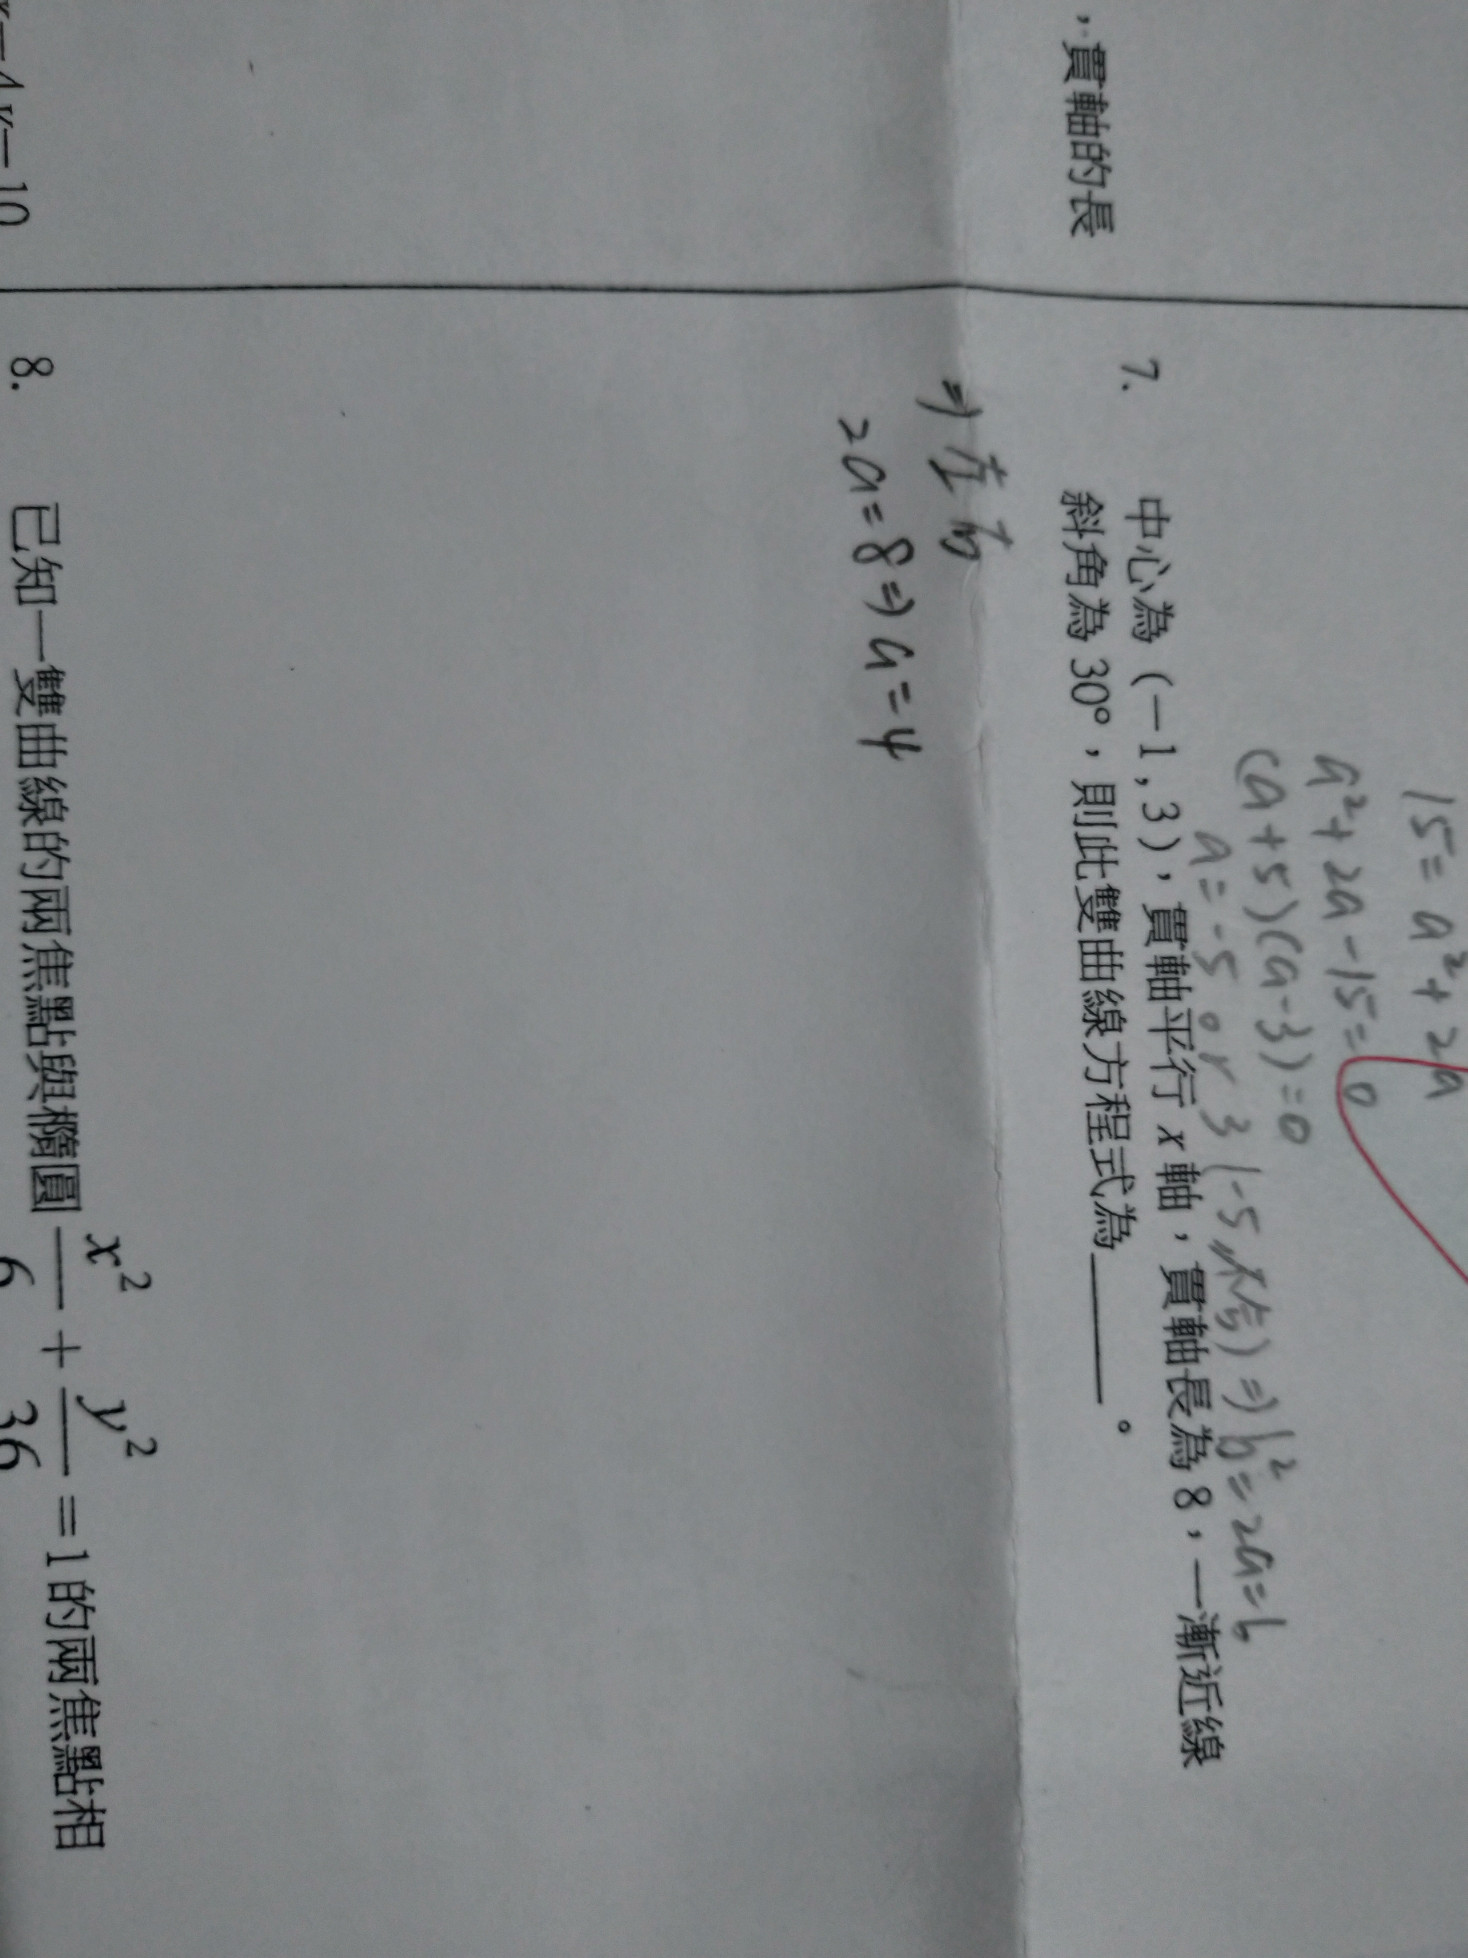 ，貫軸的長
15=a²+2a
a²+2a-15=0
(a+5)(a-3)=0
a=-5 or 3 (-5不合)⇒b²=2a=6
7. 中心為 (－1, 3)，貫軸平行 x 軸，貫軸長為 8，一漸近線
斜角為 30°，則此雙曲線方程式為＿＿＿。
⇒左右
2a=8⇒a=4
8. 已知一雙曲線的兩焦點與橢圓 x²/6 + y²/36 =1 的兩焦點相